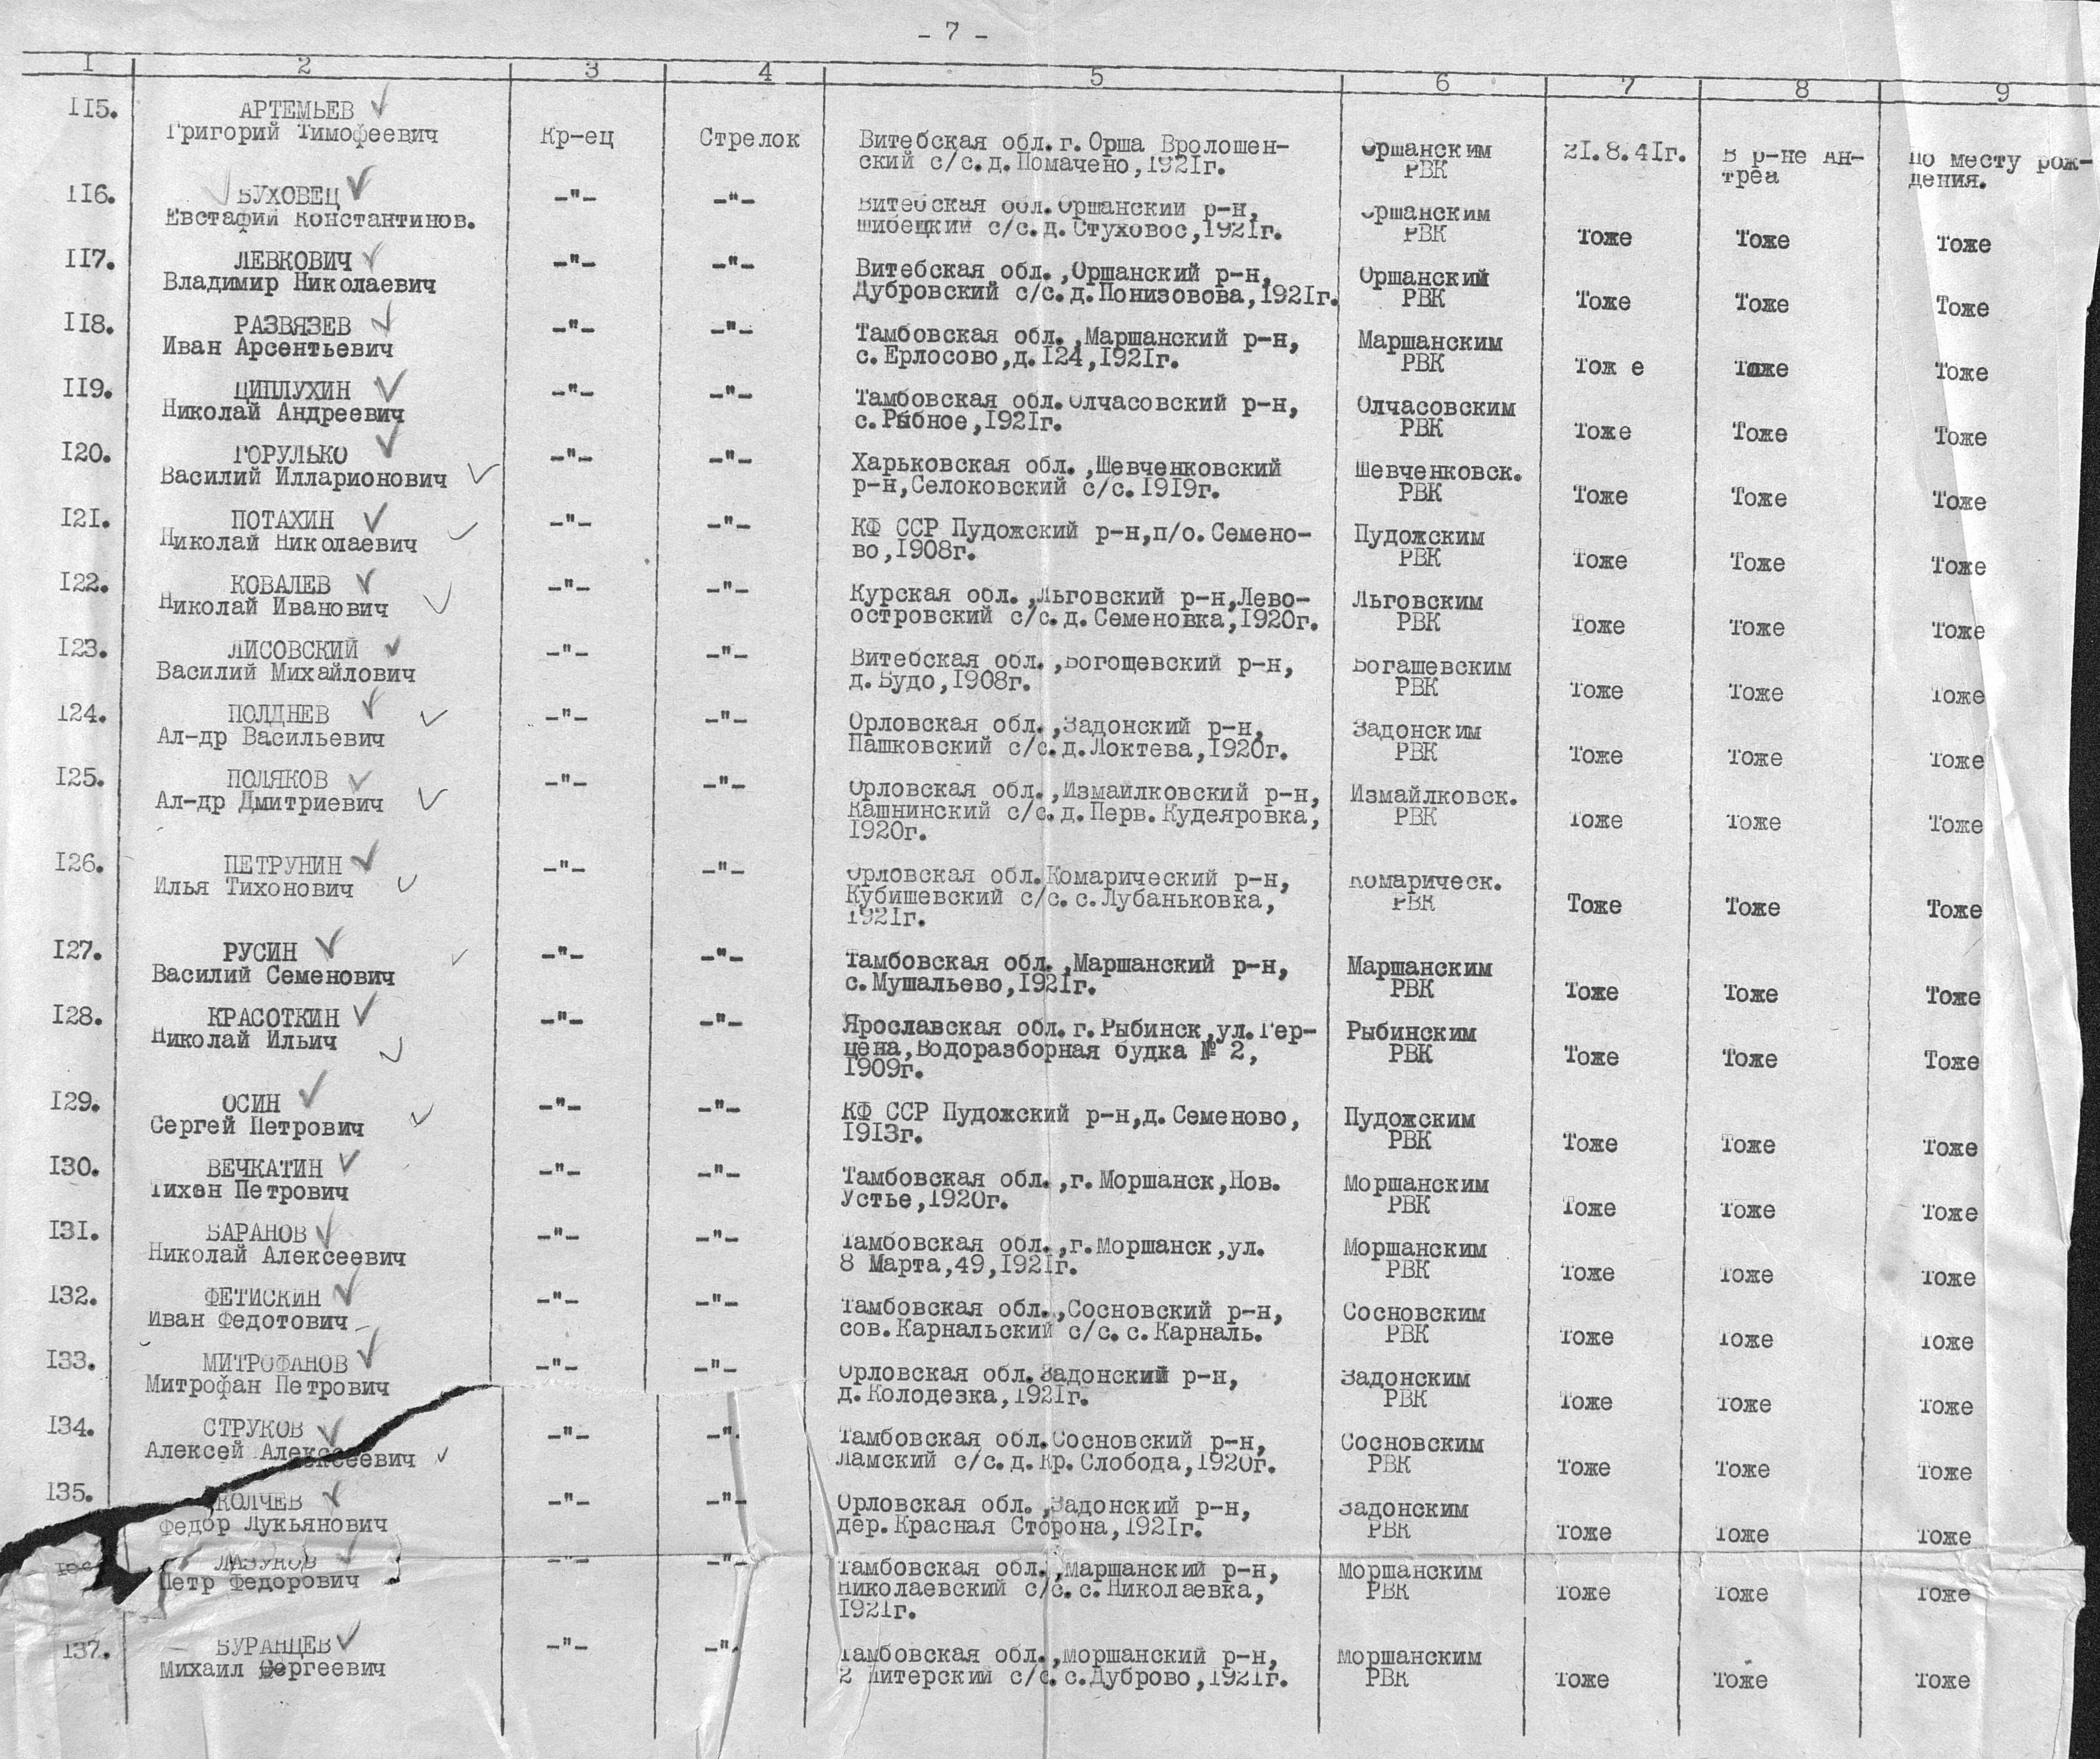 - 7 -
I 2 3 4 5 6 7 8 9
II5. АРТЕМЬЕВ
Григорий Тимофеевич Кр-ец Стрелок Витебская обл.г.Орша Вролошен- Оршанским 21.8.41г. В р-не Ан- По месту рож-
ский с/с.д.Помачено,1921г. РВК треа дения.
II6. БУХОВЕЦ -"- -"- Витебская обл.Оршанский р-н, Оршанским
Евстафий Константинов. Шибецкий с/с.д.Стуховос,1921г. РВК Тоже Тоже Тоже
II7. ЛЕВКОВИЧ -"- -"- Витебская обл.,Оршанский р-н, Оршанский
Владимир Николаевич Дубровский с/с.д.Понизовова,1921г. РВК Тоже Тоже Тоже
II8. РАЗВЯЗЕВ -"- -"- Тамбовская обл.,Маршанский р-н, Маршанским
Иван Арсентьевич с.Ерлосово,д.I24,1921г. РВК Тож е Тоже Тоже
II9. ЦИПЛУХИН -"- -"- Тамбовская обл.Олчасовский р-н, Олчасовским
Николай Андреевич с.Рыбное,1921г. РВК Тоже Тоже Тоже
I20. ГОРУЛЬКО -"- -"- Харьковская обл.,Шевченковский Шевченковск.
Василий Илларионович р-н,Селоковский с/с.1919г. РВК Тоже Тоже Тоже
I21. ПОТАХИН -"- -"- КФ ССР Пудожский р-н,п/о.Семено- Пудожским
Николай Николаевич во,1908г. РВК Тоже Тоже Тоже
I22. КОВАЛЕВ -"- -"- Курская обл.,Льговский р-н,Лево- Льговским
Николай Иванович островский с/с.д.Семеновка,1920г. РВК Тоже Тоже Тоже
I23. ЛИСОВСКИЙ -"- -"- Витебская обл.,Богощевский р-н, Богашевским
Василий Михайлович д.Будо,1908г. РВК Тоже Тоже Тоже
I24. ПОЛДНЕВ -"- -"- Орловская обл.,Задонский р-н, Задонским
Ал-др Васильевич Пашковский с/с.д.Локтева,1920г. РВК Тоже Тоже Тоже
I25. ПОЛЯКОВ -"- -"- Орловская обл.,Измайлковский р-н, Измайлковск.
Ал-др Дмитриевич Кашнинский с/с.д.Перв.Кудеяровка, РВК Тоже Тоже Тоже
1920г.
I26. ПЕТРУНИН -"- -"- Орловская обл.Комарический р-н, Комарическ.
Илья Тихонович Кубишевский с/с.с.Лубаньковка, РВК Тоже Тоже Тоже
1921г.
I27. РУСИН -"- -"- Тамбовская обл.,Маршанский р-н, Маршанским
Василий Семенович с.Мушальево,1921г. РВК Тоже Тоже Тоже
I28. КРАСОТКИН -"- -"- Ярославская обл.г.Рыбинск,ул.Гер- Рыбинским
Николай Ильич цена,Водоразборная будка № 2, РВК Тоже Тоже Тоже
1909г.
I29. ОСИН -"- -"- КФ ССР Пудожский р-н,д.Семеново, Пудожским
Сергей Петрович 1913г. РВК Тоже Тоже Тоже
I30. ВЕЧКАТИН -"- -"- Тамбовская обл.,г.Моршанск,Нов. Моршанским
Тихон Петрович Устье,1920г. РВК Тоже Тоже Тоже
I31. БАРАНОВ -"- -"- Тамбовская обл.,г.Моршанск,ул. Моршанским
Николай Алексеевич 8 Марта,49,1921г. РВК Тоже Тоже Тоже
I32. ФЕТИСКИН -"- -"- Тамбовская обл.,Сосновский р-н, Сосновским
Иван Федотович сов.Карнальский с/с.с.Карналь. РВК Тоже Тоже Тоже
I33. МИТРОФАНОВ -"- -"- Орловская обл.Задонский р-н, Задонским
Митрофан Петрович д.Колодезка,1921г. РВК Тоже Тоже Тоже
I34. СТРУКОВ -"- -"- Тамбовская обл.Сосновский р-н, Сосновским
Алексей Алексеевич Ламский с/с.д.Кр.Слобода,1920г. РВК Тоже Тоже Тоже
I35. КОЛЧЕВ -"- -"- Орловская обл.,Задонский р-н, Задонским
Федор Лукьянович дер.Красная Сторона,1921г. РВК Тоже Тоже Тоже
ЛАЗУКОВ -"- -"- Тамбовская обл.,Маршанский р-н, Моршанским
Петр Федорович Николаевский с/с.с.Николаевка, РВК Тоже Тоже Тоже
1921г.
I37. БУРАНЦЕВ -"- -"- Тамбовская обл.,Моршанский р-н, Моршанским
Михаил Сергеевич 2 Питерский с/с.с.Дуброво,1921г. РВК Тоже Тоже Тоже